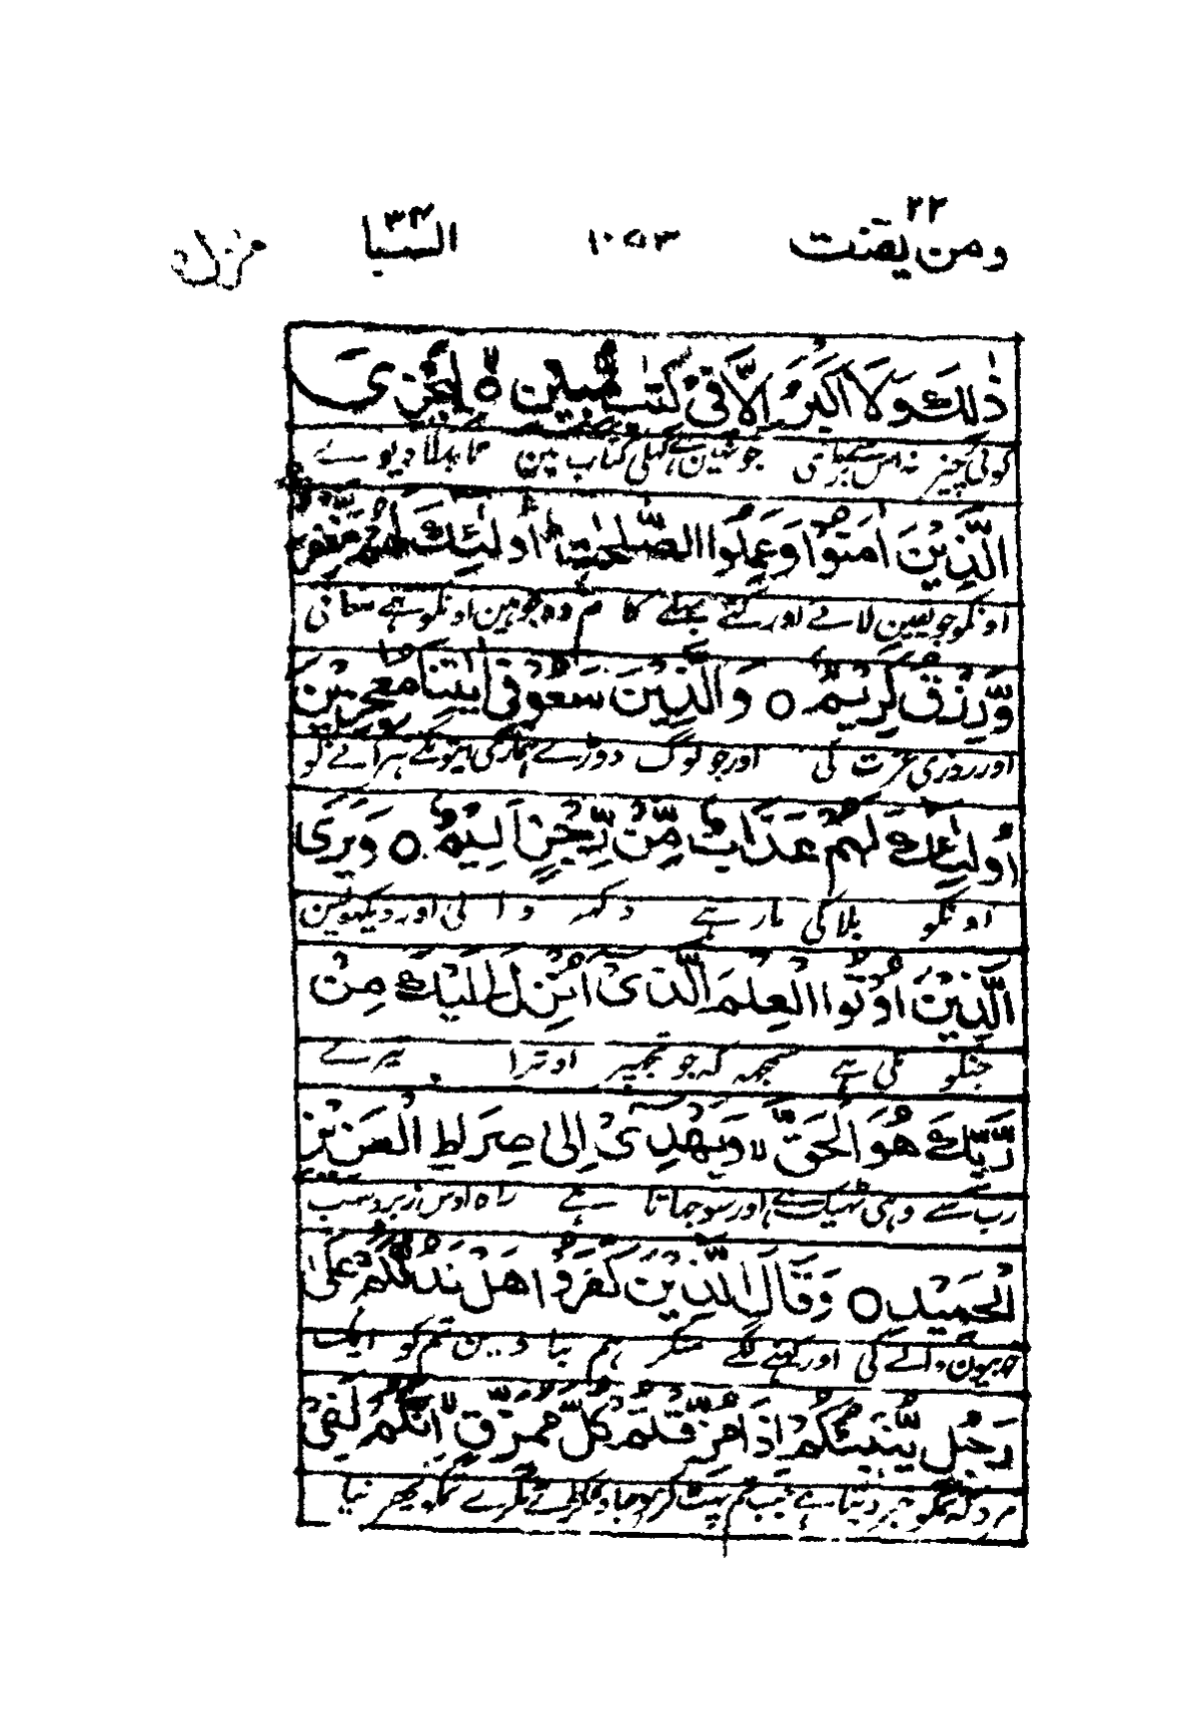 ومن یقنت ٢٢ ١٠٥٣ السبا ٣٤ منزل
ذٰلِكَ وَلَا اَكْبَرُ اِلَّا فِیْ كِتٰبٍ مُّبِیْنٍ ۝ لِّیَجْزِیَ
کوئی چیز نہ اس سے بڑی جو نہین ہے کھلی کتاب مین تا بدلا دیوے
الَّذِیْنَ اٰمَنُوْا وَعَمِلُوا الصّٰلِحٰتِ ؕ اُولٰٓئِكَ لَهُمْ مَّغْفِرَةٌ
اونکو جو یقین لائے اور کئے بھلے کام وہ جو ہین اونکو ہے معافی
وَّرِزْقٌ كَرِیْمٌ ۝ وَالَّذِیْنَ سَعَوْ فِیْۤ اٰیٰتِنَا مُعٰجِزِیْنَ
اور روزی عزت کی اور جو لوگ دوڑے ہماری آیتونکے ہرانے کو
اُولٰٓئِكَ لَهُمْ عَذَابٌ مِّنْ رِّجْزٍ اَلِیْمٌ ۝ وَیَرَی
اونکو بلا کی مار ہے دکھ والی اور دیکھ لین
الَّذِیْنَ اُوْتُوا الْعِلْمَ الَّذِیْۤ اُنْزِلَ اِلَیْكَ مِنْ
جنکو ملی ہے سمجھ کہ جو تجھپر اوترا تیرے
رَّبِّكَ هُوَ الْحَقَّ ۙ وَیَهْدِیْۤ اِلٰی صِرَاطِ الْعَزِیْزِ
رب سے وہی ٹھیک ہے اور سوجھاتا ہے راہ اوس زبردست
الْحَمِیْدِ ۝ وَقَالَ الَّذِیْنَ كَفَرُوْا هَلْ نَدُلُّكُمْ عَلٰی
خوبیون والے کی اور کہنے لگے منکر ہم بتا دین تمکو ایک
رَجُلٍ یُّنَبِّئُكُمْ اِذَا مُزِّقْتُمْ كُلَّ مُمَزَّقٍ ۙ اِنَّكُمْ لَفِیْ
مرد کہ تمکو خبر دیتا ہے جب تم پھٹ کر ہو جاؤ ٹکڑے ٹکڑے تمکو پھر نیا